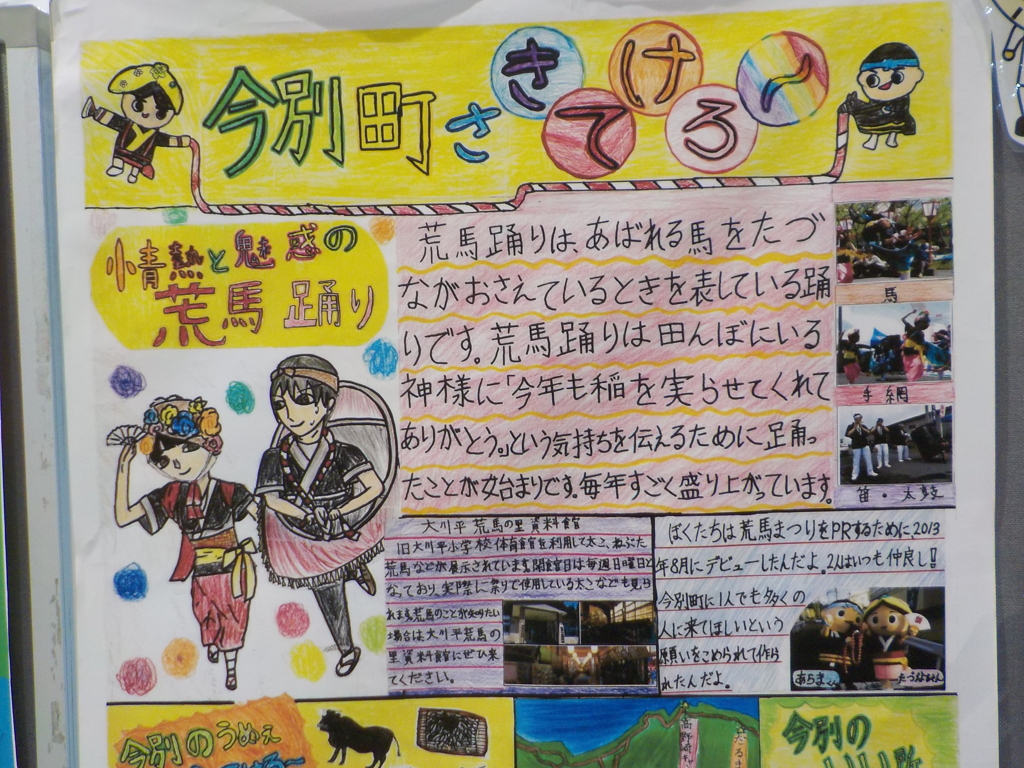 今別町さきてけろ〜
情熱と魅惑の
荒馬踊り
荒馬踊りは、あばれる馬をたづ
ながおさえているときを表している踊
りです。荒馬踊りは田んぼにいる
神様に「今年も稲を実らせてくれて
ありがとう。」という気持ちを伝えるために踊っ
たことが始まりです。毎年すごく盛り上がっています。
馬
手綱
笛・太鼓
大川平荒馬の里資料館
旧大川平小学校体育館を利用して太こ、ねぶた
荒馬などが展示されています。開館日は毎週日曜日と
なっており、実際に祭りで使用している太こなども見ら
れます。荒馬のことが知りたい
場合は大川平荒馬の
里資料館にぜひ来
てください。
ぼくたちは荒馬まつりをPRするために2013
年8月にデビューしたんだよ。2人はいつも仲良し!
今別町に1人でも多くの
人に来てほしいという
願いをこめられて作ら
れたんだよ。
あらまくん
たづなちゃん
今別のうめぇ
高野崎
今別の